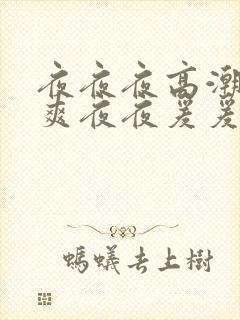 夜夜夜高潮
爽夜夜爰爰
螞蟻去上樹